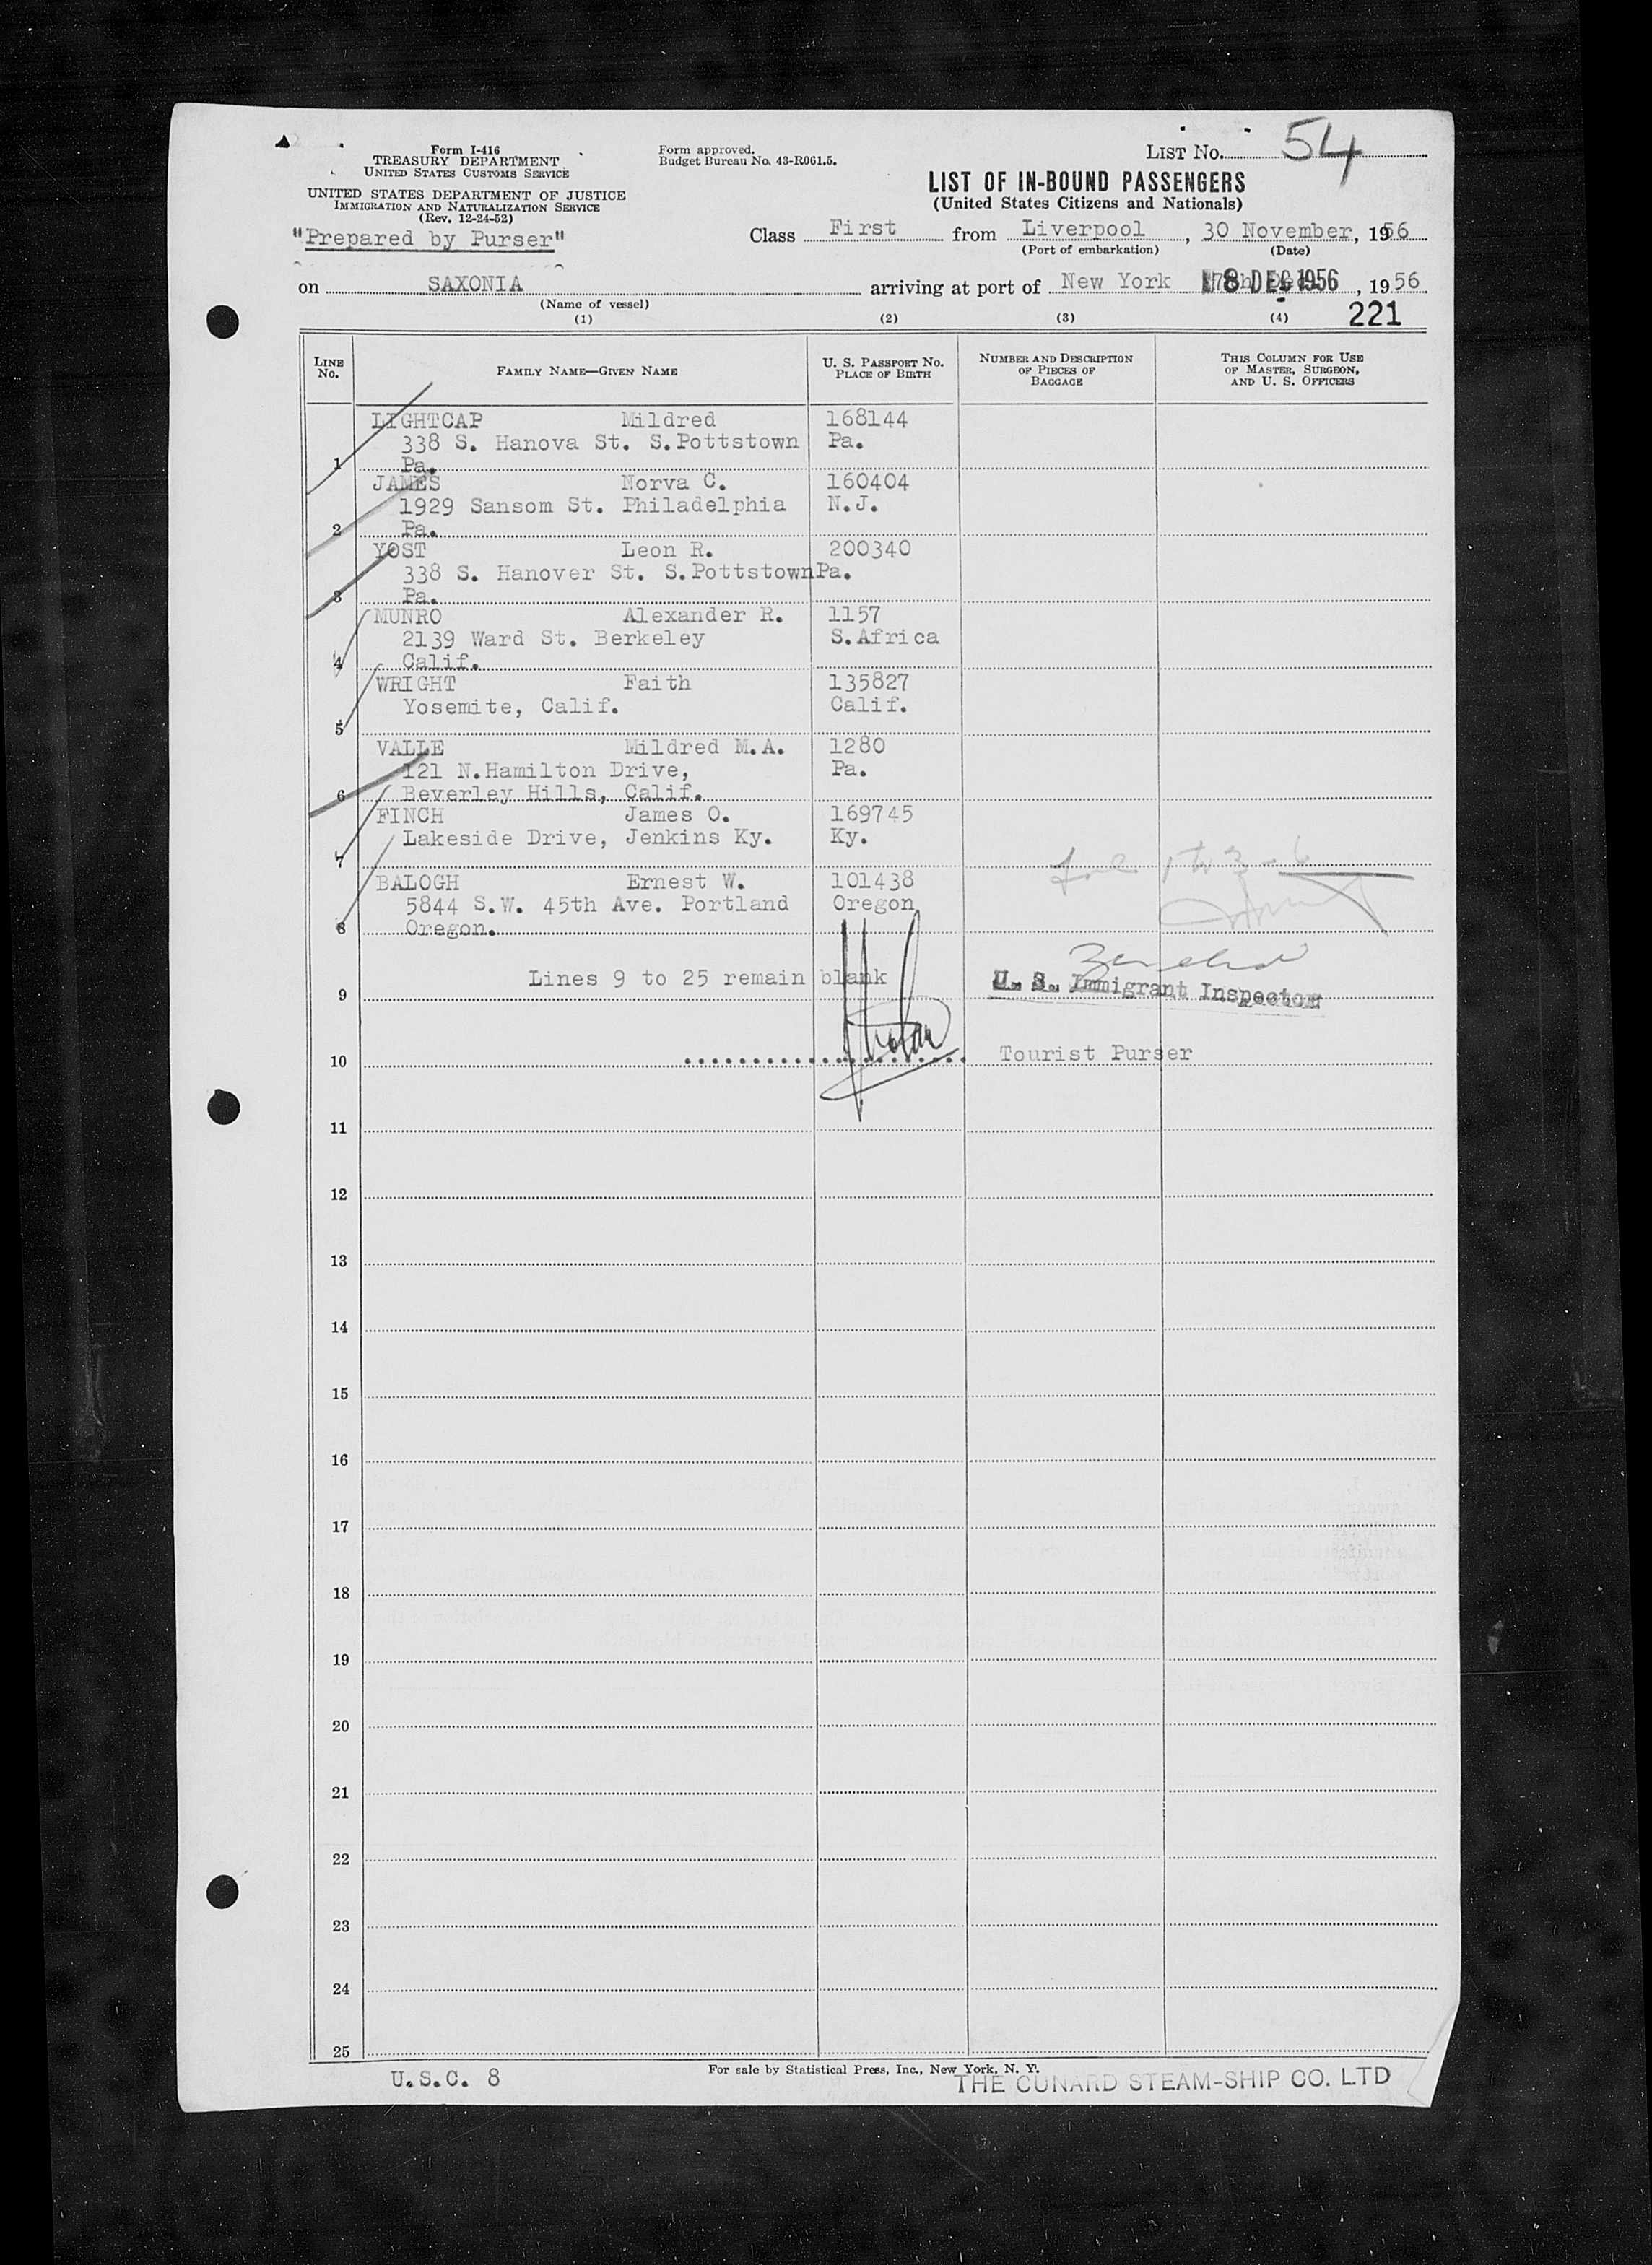 LIST No. 54
Form I-416
TREASURY DEPARTMENT
UNITED STATES CUSTOMS SERVICE
UNITED STATES DEPARTMENT OF JUSTICE
IMMIGRATION AND NATURALIZATION SERVICE
(Rev. 12-24-52)
"Prepared by Purser"
Form approved.
Budget Bureau No. 43-R061.5.
LIST OF IN-BOUND PASSENGERS
(United States Citizens and Nationals)
Class First from Liverpool, 30 November, 1956
(Port of embarkation) (Date)
on SAXONIA arriving at port of New York 8 DEC 1956, 1956
(Name of vessel)
(1) (2) (3) (4) 221
LINE No. FAMILY NAME—GIVEN NAME U. S. PASSPORT No. PLACE OF BIRTH NUMBER AND DESCRIPTION OF PIECES OF BAGGAGE THIS COLUMN FOR USE OF MASTER, SURGEON, AND U. S. OFFICERS
LIGHTCAP Mildred 168144
338 S. Hanova St. S.Pottstown Pa.
1 Pa.
JAMES Norva C. 160404
1929 Sansom St. Philadelphia N.J.
2 Pa.
YOST Leon R. 200340
338 S. Hanover St. S.Pottstown Pa.
3 Pa.
MUNRO Alexander R. 1157
2139 Ward St. Berkeley S.Africa
4 Calif.
WRIGHT Faith 135827
Yosemite, Calif. Calif.
5
VALLE Mildred M.A. 1280
121 N.Hamilton Drive, Pa.
6 Beverley Hills, Calif.
FINCH James O. 169745
Lakeside Drive, Jenkins Ky. Ky.
7 1 to 3 - 6
BALOGH Ernest W. 101438
5844 S.W. 45th Ave. Portland Oregon
8 Oregon.
Lines 9 to 25 remain blank
U. S. Immigrant Inspector
9
10 Tourist Purser
11
12
13
14
15
16
17
18
19
20
21
22
23
24
25
U.S.C. 8
For sale by Statistical Press, Inc., New York, N. Y.
THE CUNARD STEAM-SHIP CO. LTD